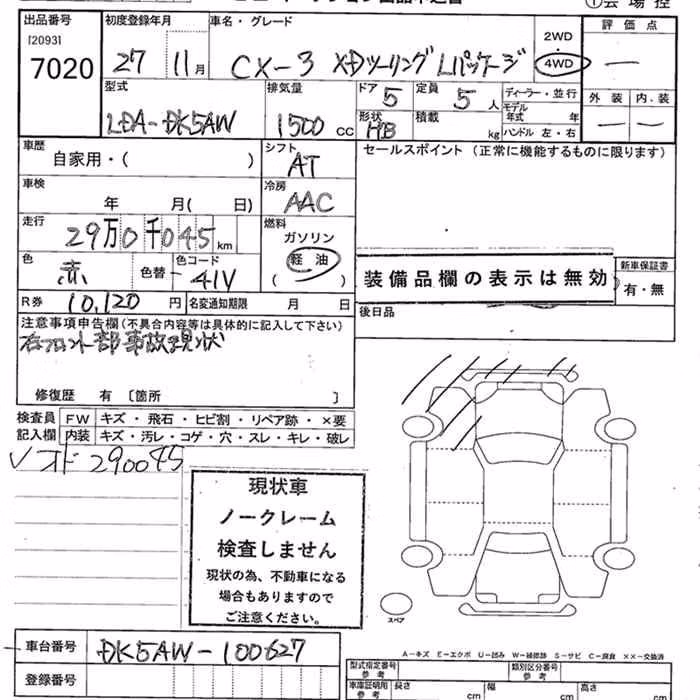 ①会場控
出品番号 [2093] 7020
初度登録年月 27 11月
車名・グレード CX-3 XDツーリング Lパッケージ
2WD
4WD
評価点 —
外装 — 内装 —
型式 LDA-DK5AW
排気量 1500 CC
ドア 5
形状 HB
定員 5 人
積載 kg
ディーラー・並行
モデル年式 年
ハンドル 左・右
車歴 自家用・( )
シフト AT
セールスポイント (正常に機能するものに限ります)
車検 年 月( 日)
冷房 AAC
走行 29万0千045km
燃料 ガソリン
軽油
( )
色 赤 色替 - 色コード 41V
装備品欄の表示は無効
新車保証書
有・無
R券 10,120円 名変通知期限 月 日
後日品
注意事項申告欄(不具合内容等は具体的に記入して下さい)
右フロント部事故現状
修復歴 有 〔箇所 〕
検査員 FW キズ・飛石・ヒビ割・リペア跡・×要
記入欄 内装 キズ・汚レ・コゲ・穴・スレ・キレ・破レ
オド 290045
現状車
ノークレーム
検査しません
現状の為、不動車になる
場合もありますので
ご注意ください。
スペア
A-キズ E-エクボ U-凹み W-補修跡 S-サビ C-腐食 XX-交換済
車台番号 DK5AW-100627
登録番号
型式指定番号 参考 類別区分番号 参考
車庫証明用 参考 長さ cm 幅 cm 高さ cm